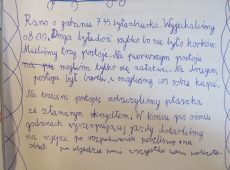 Rano o godzinie 7:45 była zbiórka. Wyjechaliśmy
08:00. Droga była dość szybko bo nie było korków.
Mieliśmy trzy postoje. Na pierwszym postoju
na się tylko się załatwić. Na drugim
postoju był i mogliśmy coś sobie kupić.
Na trzecim postoju zobaczyliśmy ptaszka
ze złamanym skrzydłem. W końcu po ośmiu
godzinach wyczerpującej jazdy dotarliśmy
na miejsce po rozpakowaniu poszliśmy na
obiad po obiedzie pani wszystko nam